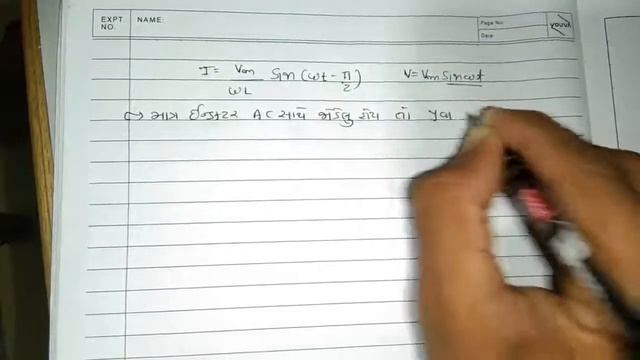 EXPT. NO.
NAME:
Page No:
Date
youva
I = Vm/ωL Sin(ωt - π/2) V = Vm Sinωt
→ માત્ર ઈન્ડક્ટર AC સાથે જોડેલુ હોય તો